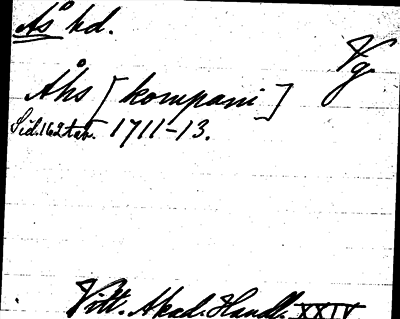 Ås hd.
Vg.
Åhs [kompani]
Sid. 162 tav. 1711-13.
Vitt. Akad. Handl. XXIV